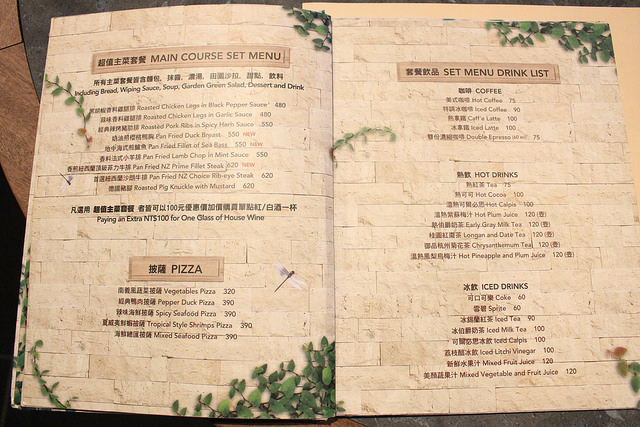 超值主菜套餐 MAIN COURSE SET MENU
所有主菜套餐皆含麵包, 抹醬, 濃湯, 田園沙拉, 甜點, 飲料
Including Bread, Wiping Sauce, Soup, Garden Green Salad, Dessert and Drink
Roasted Chicken Legs in Black Pepper Sauce 480
蒜味香料雞腿排 Roasted Chicken Legs in Garlic Sauce 480
經典辣烤豬肋排 Roasted Pork Ribs in Spicy Herb Sauce 550
奶油煎櫻桃鴨胸 Pan Fried Duck Breast 550 NEW
地中海式煎鱸魚 Pan Fried Fillet of Sea Bass 550 NEW
香料法式小羊排 Pan Fried Lamb Chop in Mint Sauce 550
香煎紐西蘭頂級菲力牛排 Pan Fried NZ Prime Fillet Steak 620 NEW
首選紐西蘭沙朗牛排 Pan Fried NZ Choice Rib-eye Steak 620
德國豬腳 Roasted Pig Knuckle with Mustard 620
凡選用 超值主菜套餐 者皆可以100元優惠價加價購買單點紅/白酒一杯
Paying an Extra NT$100 for One Glass of House Wine
披薩 PIZZA
南義風蔬菜披薩 Vegetables Pizza 320
經典鴨肉披薩 Pepper Duck Pizza 390
辣味海鮮披薩 Spicy Seafood Pizza 390
夏威夷鮮蝦披薩 Tropical Style Shrimps Pizza 390
海鮮總匯披薩 Mixed Seafood Pizza 390
套餐飲品 SET MENU DRINK LIST
咖啡 COFFEE
美式咖啡 Hot Coffee 75
特調冰咖啡 Iced Coffee 90
熱拿鐵 Caff'e Latte 100
冰拿鐵 Iced Latte 100
雙份濃縮咖啡 Double Epresso 75
熱飲 HOT DRINKS
熱紅茶 Tea 75
熱可可 Hot Cocoa 100
溫熱可爾必思 Hot Calpis 100
溫熱紫蘇梅汁 Hot Plum Juice 120 (壺)
格伯爵奶茶 Early Gray Milk Tea 120 (壺)
桂圓紅棗茶 Longan and Date Tea 120 (壺)
御品杭州菊花茶 Chrysanthemum Tea 120 (壺)
溫熱鳳梨烏梅汁 Hot Pineapple and Plum Juice 120 (壺)
冰飲 ICED DRINKS
可口可樂 Coke 60
雪碧 Sprite 60
冰錫蘭紅茶 Iced Tea 90
冰伯爵奶茶 Iced Milk Tea 100
可爾必思冰飲 Iced Calpis 100
荔枝醋冰飲 Iced Litchi Vinegar 100
新鮮水果汁 Mixed Fruit Juice 120
美顏蔬果汁 Mixed Vegetable and Fruit Juice 120